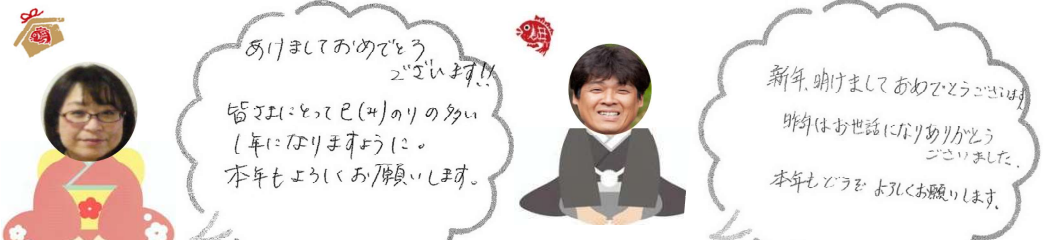 あけましておめでとう
ございます!!
皆さまにとって巳(み)のりの多い
1年になりますように。
本年もよろしくお願いします。
新年、明けましておめでとうございます
昨年はお世話になりありがとう
ございました。
本年もどうぞよろしくお願いします。